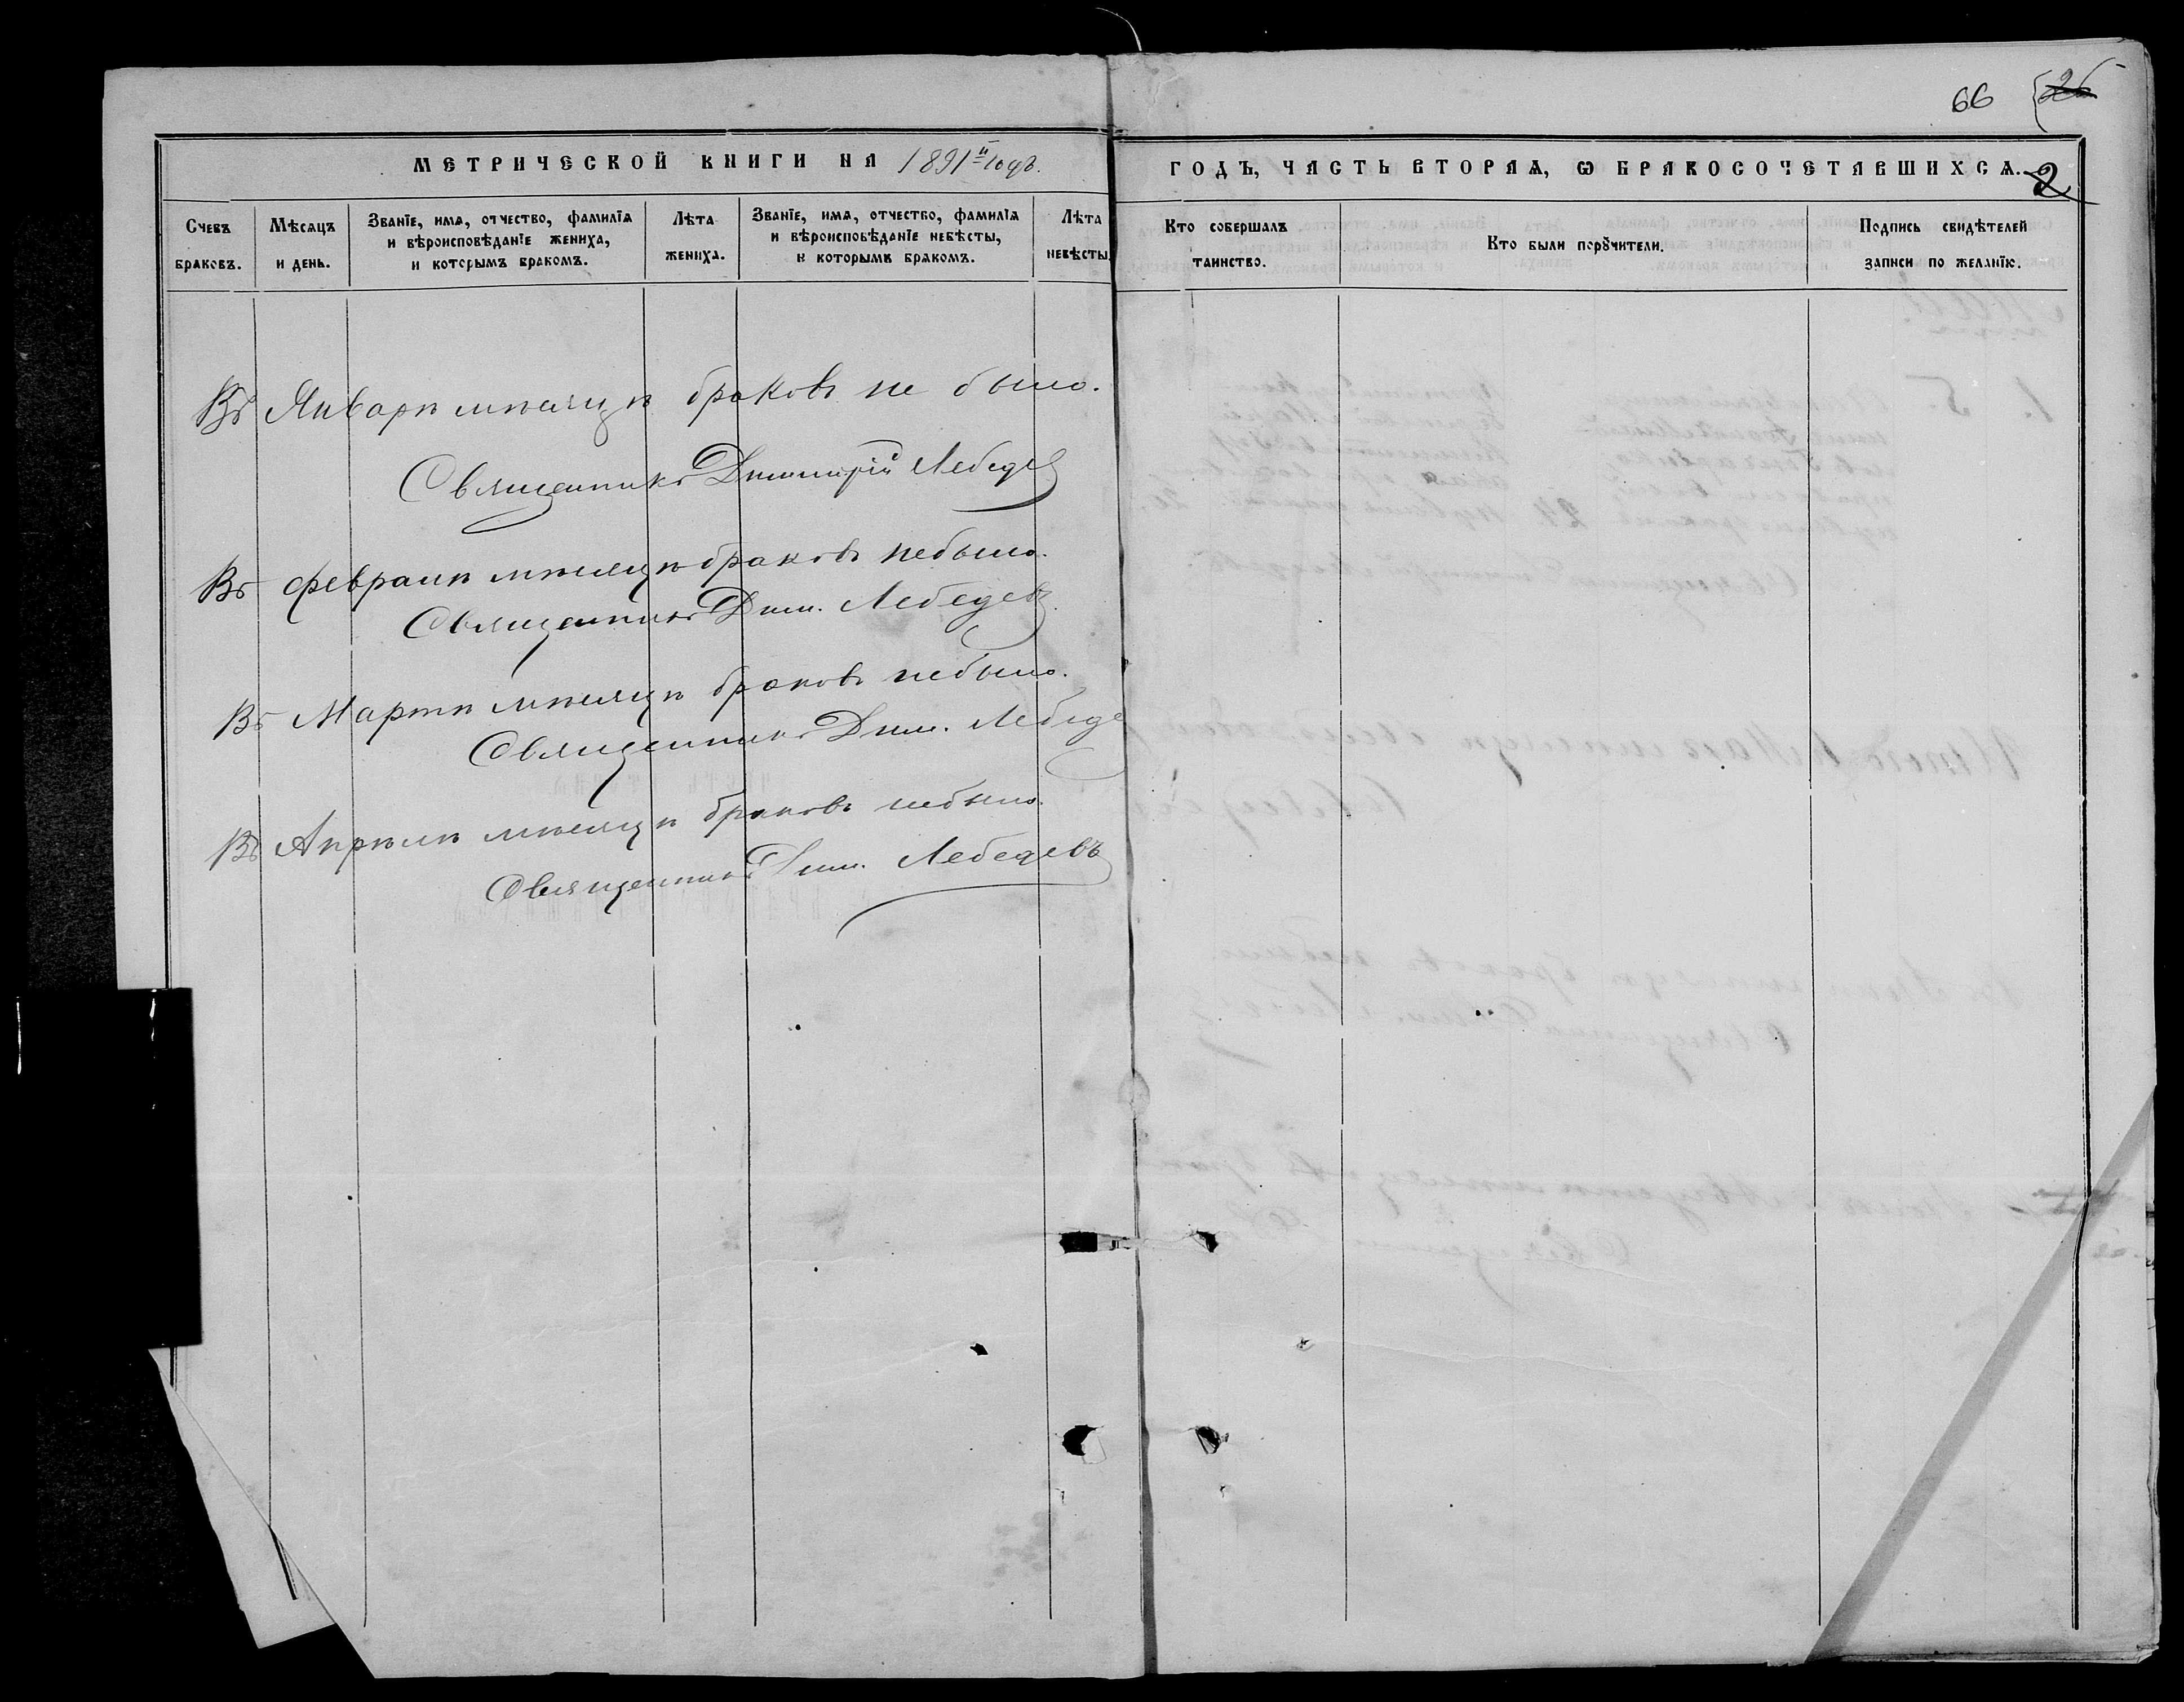 66 26
МЕТРИЧЕСКОЙ КНИГИ НА 1891й годъ.
ГОДЪ, ЧАСТЬ ВТОРАѦ, Ѡ БРАКОСОЧЕТАВШИХСѦ. 2
Счевъ браковъ.
Мѣсѧцъ и день.
Званїе, имѧ, отчество, фамилїѧ
и вѣроисповѣданїе жениха,
и которымъ бракомъ.
Лѣта жениха.
Званїе, имѧ, отчество, фамилїѧ
и вѣроисповѣданїе невѣсты,
и которымъ бракомъ.
Лѣта невѣсты.
Кто совершалъ таинство.
Кто были порꙋчители.
Подпись свидѣтелей
записи по желанїю.
Въ Январѣ мѣсяцѣ браковъ не было.
Священникъ Димитрій Лебедев
Въ февралѣ мѣсяцѣ браковъ небыло.
Священникъ Дим. Лебедевъ.
Въ Мартѣ мѣсяцѣ браковъ небыло.
Священникъ Дим. Лебеде
Въ Апрѣлѣ мѣсяцѣ браковъ небыло.
Священникъ Дим. Лебедевъ